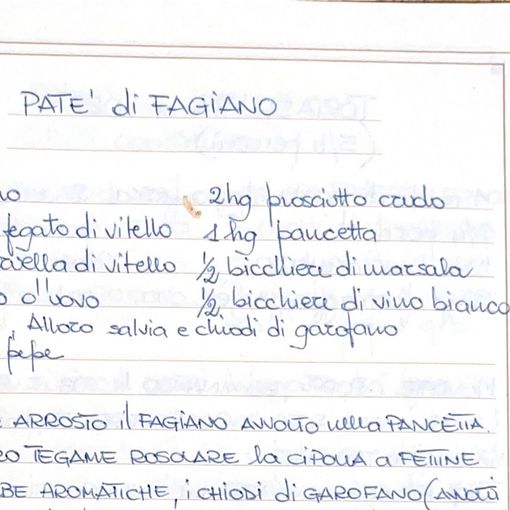 PATE' di FAGIANO
no 2hg prosciutto crudo
fegato di vitello 1hg pancetta
rvella di vitello ½ bicchiere di marsala
o d'uovo ½ bicchiere di vino bianco
, Alloro salvia e chiodi di garofano
pepe
E ARROSTO il FAGIANO AVVOLTO nella PANCETTA.
RO TEGAME ROSOLARE la CIPOLLA a FETTINE
BE AROMATICHE, i CHIODI di GAROFANO (AVVOLTI